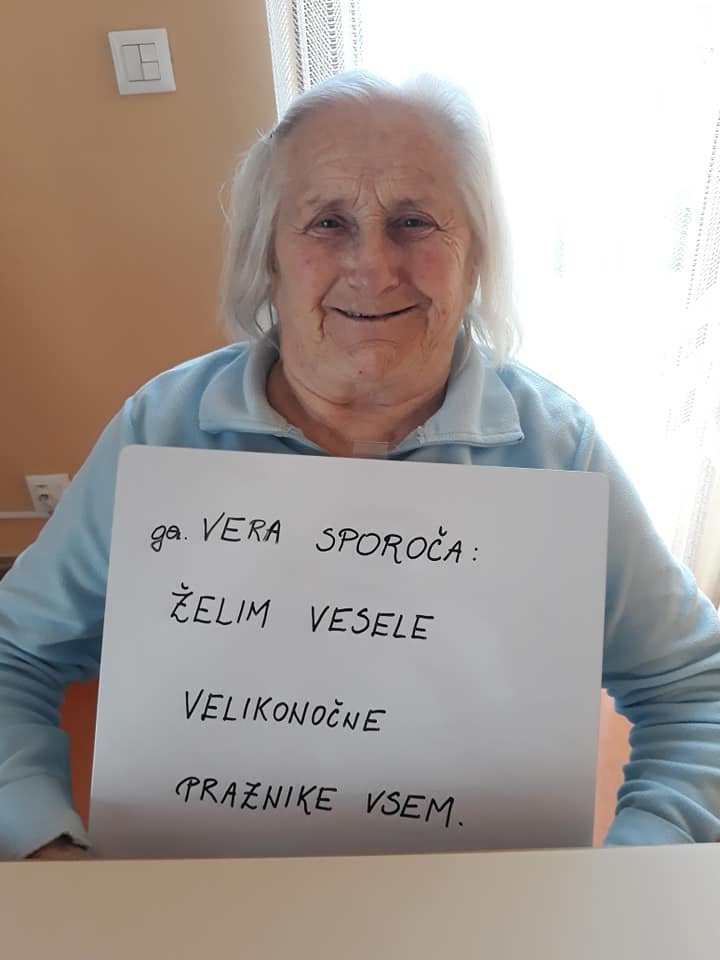 ga. VERA SPOROČA:
ŽELIM VESELE
VELIKONOČNE
PRAZNIKE VSEM.